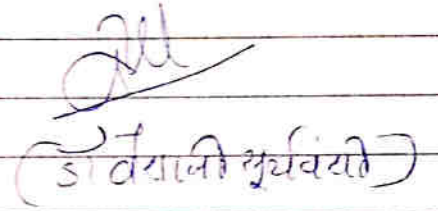 (डॉ वैशाली सूर्यवंशी)